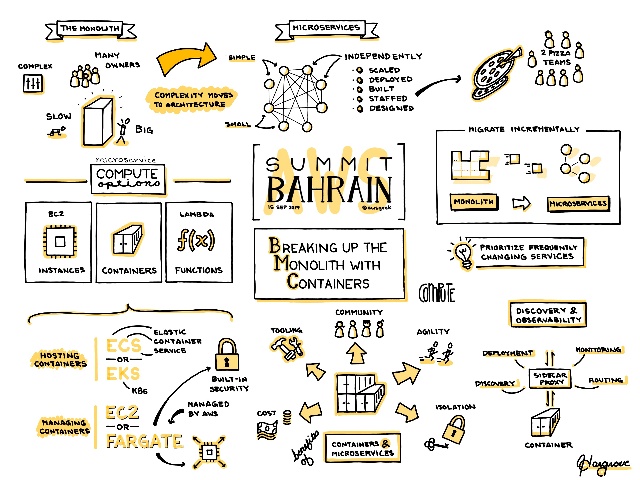 THE MONOLITH
COMPLEX
MANY
OWNERS
SLOW
BIG
COMPLEXITY MOVES
TO ARCHITECTURE
MICROSERVICES
SIMPLE
SMALL
INDEPENDENTLY
SCALED
DEPLOYED
BUILT
STAFFED
DESIGNED
2 PIZZA
TEAMS
MICROSERVICE
COMPUTE
options
EC2
INSTANCES
CONTAINERS
LAMBDA
f(x)
FUNCTIONS
AWS
SUMMIT
BAHRAIN
15 SEP 2019
BREAKING UP THE
MONOLITH WITH
CONTAINERS
MIGRATE INCREMENTALLY
MONOLITH
MICROSERVICES
PRIORITIZE FREQUENTLY
CHANGING SERVICES
HOSTING
CONTAINERS
ECS
-OR-
EKS
ELASTIC
CONTAINER
SERVICE
K8s
BUILT-IN
SECURITY
MANAGING
CONTAINERS
EC2
-OR-
FARGATE
MANAGED
BY AWS
COMPUTE
COMMUNITY
TOOLING
AGILITY
COST
ISOLATION
benefits
of
CONTAINERS &
MICROSERVICES
DISCOVERY &
OBSERVABILITY
DEPLOYMENT
MONITORING
SIDECAR
PROXY
DISCOVERY
ROUTING
CONTAINER
Hargrove